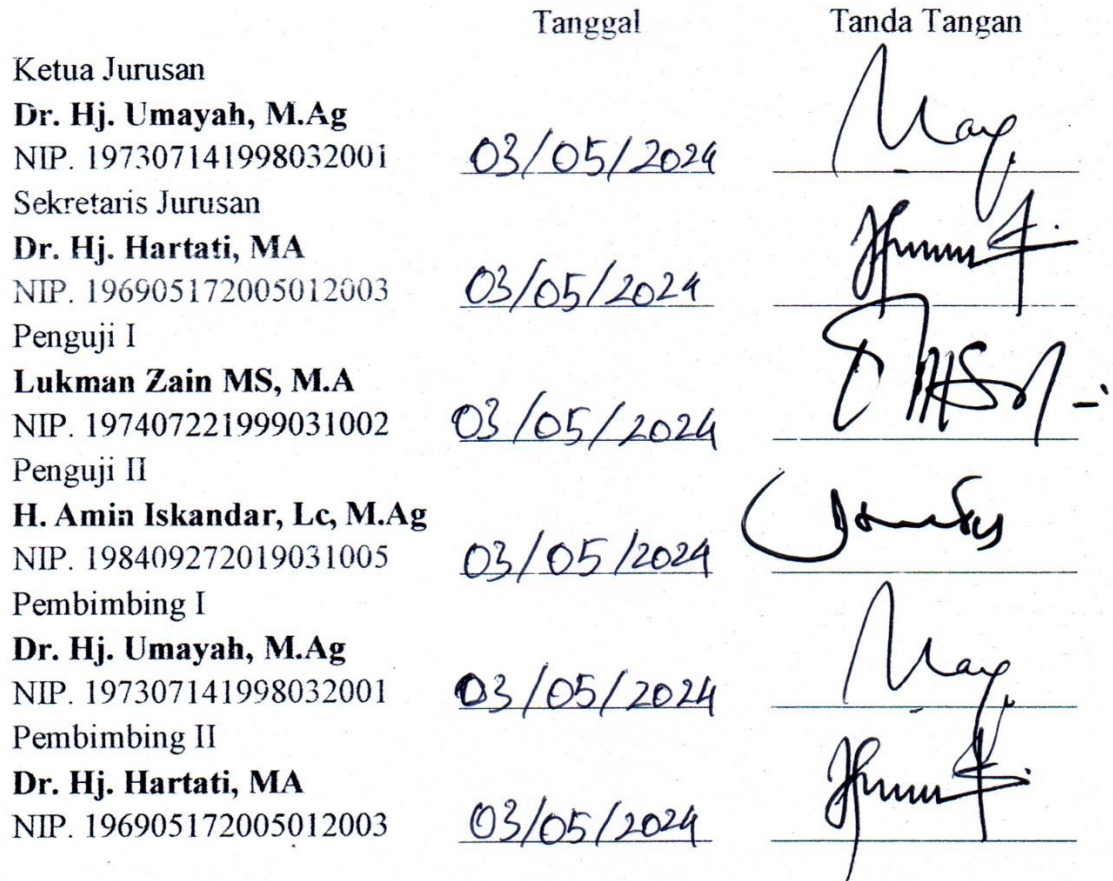 Tanggal Tanda Tangan
Ketua Jurusan
Dr. Hj. Umayah, M.Ag
NIP. 197307141998032001 03/05/2024
Sekretaris Jurusan
Dr. Hj. Hartati, MA
NIP. 196905172005012003 03/05/2024
Penguji I
Lukman Zain MS, M.A
NIP. 197407221999031002 03/05/2024
Penguji II
H. Amin Iskandar, Lc, M.Ag
NIP. 198409272019031005 03/05/2024
Pembimbing I
Dr. Hj. Umayah, M.Ag
NIP. 197307141998032001 03/05/2024
Pembimbing II
Dr. Hj. Hartati, MA
NIP. 196905172005012003 03/05/2024